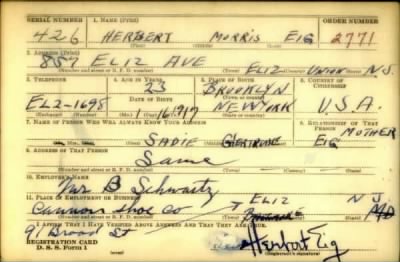 SERIAL NUMBER 1. NAME (Print) ORDER NUMBER
426 HERBERT MORRIS EIG 2771
(First) (Middle) (Last)
2. ADDRESS (Print)
857 ELIZ AVE ELIZ UNION N.J.
(Number and street or R. F. D. number) (Town) (County) (State)
3. TELEPHONE 4. AGE IN YEARS 5. PLACE OF BIRTH 6. COUNTRY OF CITIZENSHIP
23 BROOKLYN
EL2-1698 DATE OF BIRTH (Town or county)
1 16 1917 NEW YORK U.S.A.
(Exchange) (Number) (Mo.) (Day) (Yr.) (State or country)
7. NAME OF PERSON WHO WILL ALWAYS KNOW YOUR ADDRESS 8. RELATIONSHIP OF THAT PERSON
MOTHER
SADIE GERTRUDE EIG
(Mr., Mrs., Miss) (First) (Middle) (Last)
9. ADDRESS OF THAT PERSON
Same
(Number and street or R. F. D. number) (Town) (County) (State)
10. EMPLOYER'S NAME
Mr B Schwartz
11. PLACE OF EMPLOYMENT OR BUSINESS ELIZ N J
Cannon Shoe Co
(Number and street or R. F. D. number) (Town) (County) (State)
I AFFIRM THAT I HAVE VERIFIED ABOVE ANSWERS AND THAT THEY ARE TRUE.
91 Broad St
REGISTRATION CARD
D. S. S. Form 1 Herbert Eig
(Registrant's signature)